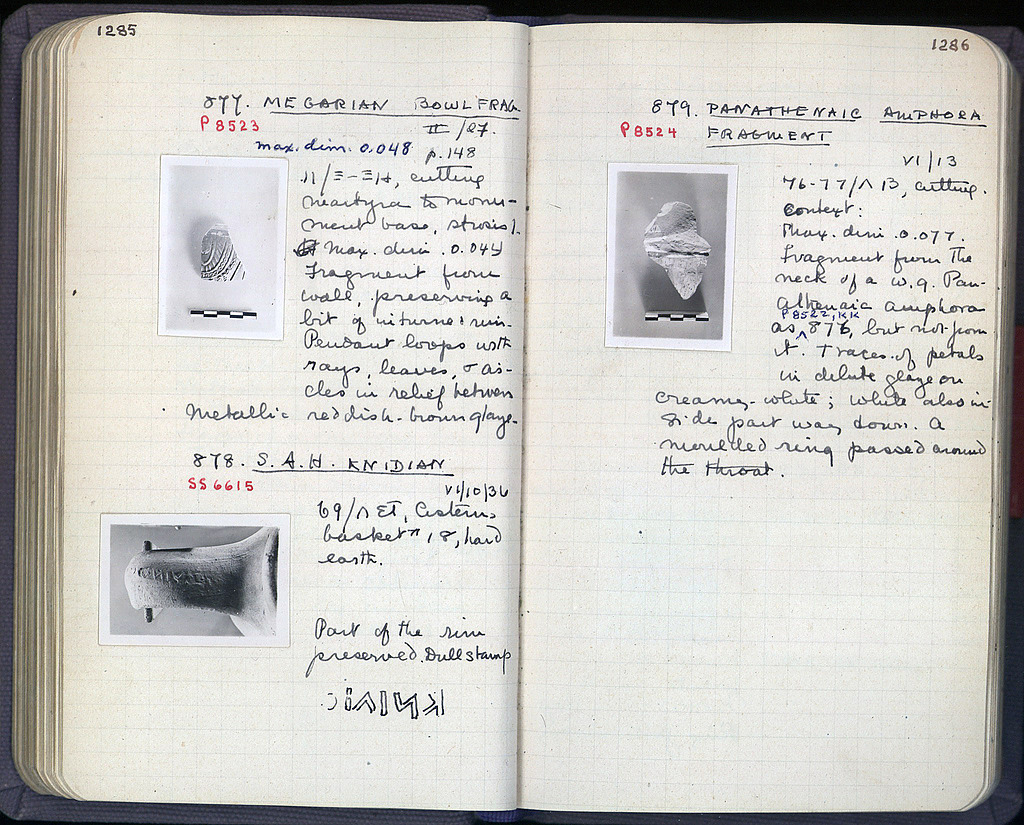 1285
877. MEGARIAN BOWL FRAG
P 8523
II /27.
max. dim. 0.048 p. 148
cutting
martyra to monu-
ment base, strosis 1.
Max. dim. 0.044
Fragment from
wall, preserving a
bit of inturned rim.
Pendant loops with
rays, leaves, + as-
cles in relief between
Metallic reddish-brown glaze.
878. S.A.H. KNIDIAN
SS 6615
VI/10/36
69/Λ ΣΤ, Cistern,
basket # 18, hard
earth.
Part of the rim
preserved. Dull stamp
1286
879. PANATHENAIC AMPHORA
P 8524 FRAGMENT
VI/13
76-77/Λ Β, cutting.
Context:
Max. dim. 0.077.
Fragment from the
neck of a W.G. Pan-
athenaic amphora
P 8522, KK
as 876, but not from
it. Traces of petals
in dilute glaze on
creamy-white; white also in-
side part way down. A
moulded ring passed around
the throat.